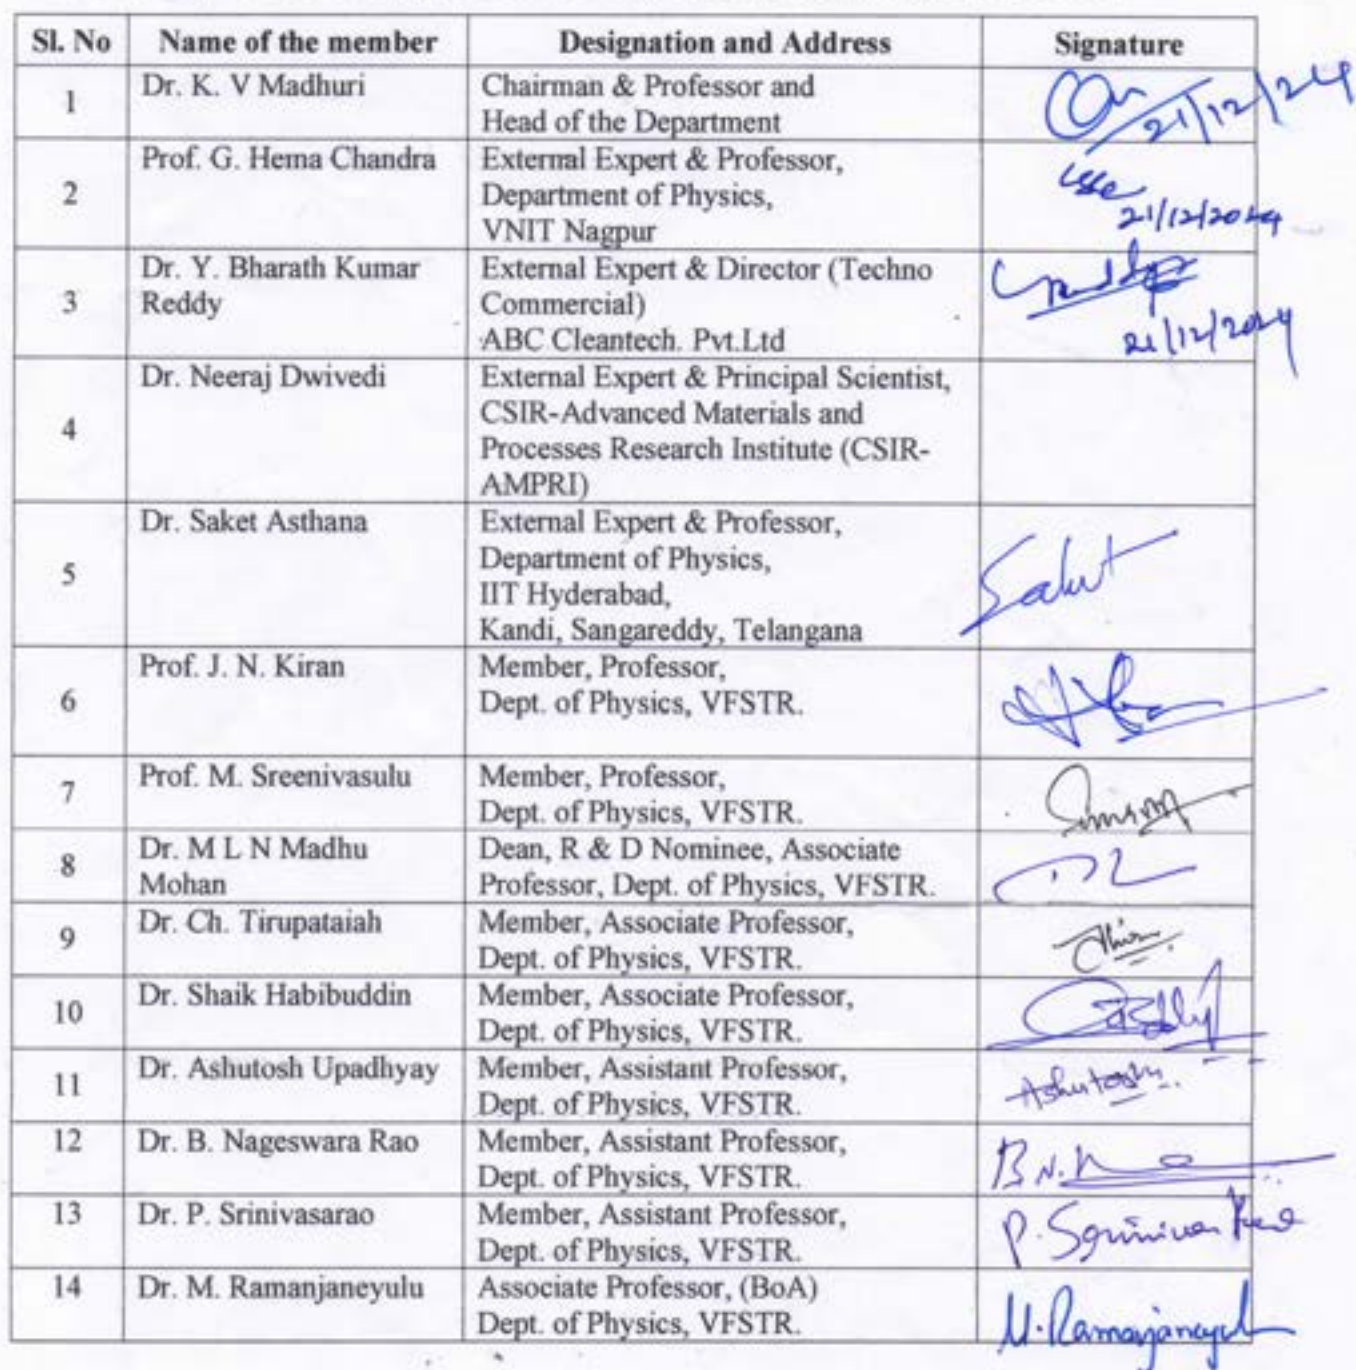 Sl. No Name of the member Designation and Address Signature
1 Dr. K. V Madhuri Chairman & Professor and
Head of the Department
21/12/24
2 Prof. G. Hema Chandra External Expert & Professor,
Department of Physics,
VNIT Nagpur
21/12/2024
3 Dr. Y. Bharath Kumar
Reddy
External Expert & Director (Techno
Commercial)
ABC Cleantech. Pvt.Ltd
21/12/2024
4 Dr. Neeraj Dwivedi External Expert & Principal Scientist,
CSIR-Advanced Materials and
Processes Research Institute (CSIR-
AMPRI)
5 Dr. Saket Asthana External Expert & Professor,
Department of Physics,
IIT Hyderabad,
Kandi, Sangareddy, Telangana
Saket
6 Prof. J. N. Kiran Member, Professor,
Dept. of Physics, VFSTR.
7 Prof. M. Sreenivasulu Member, Professor,
Dept. of Physics, VFSTR.
8 Dr. M L N Madhu
Mohan
Dean, R & D Nominee, Associate
Professor, Dept. of Physics, VFSTR.
9 Dr. Ch. Tirupataiah Member, Associate Professor,
Dept. of Physics, VFSTR.
10 Dr. Shaik Habibuddin Member, Associate Professor,
Dept. of Physics, VFSTR.
11 Dr. Ashutosh Upadhyay Member, Assistant Professor,
Dept. of Physics, VFSTR.
Ashutosh
12 Dr. B. Nageswara Rao Member, Assistant Professor,
Dept. of Physics, VFSTR.
B N.
13 Dr. P. Srinivasarao Member, Assistant Professor,
Dept. of Physics, VFSTR.
P.
14 Dr. M. Ramanjaneyulu Associate Professor, (BoA)
Dept. of Physics, VFSTR.
M. Ramanjaneyulu